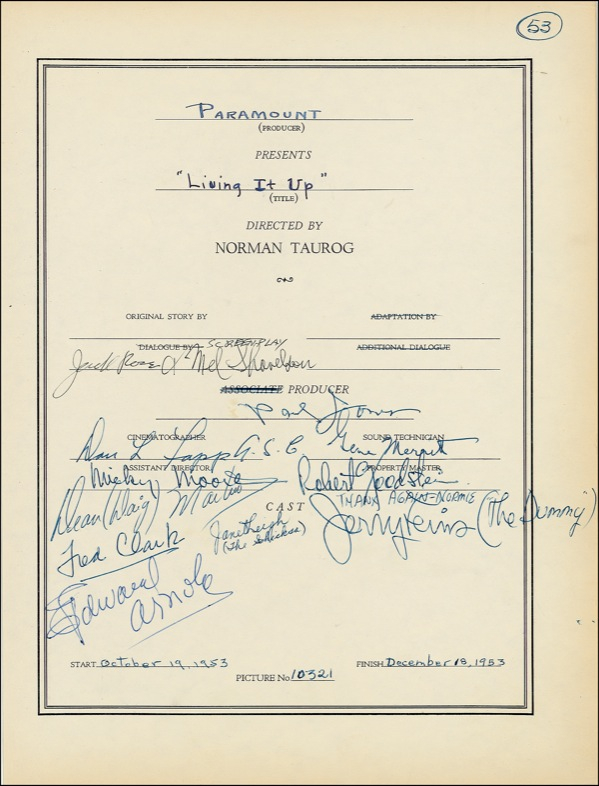 53
PARAMOUNT
(PRODUCER)
PRESENTS
"Living It Up"
(TITLE)
DIRECTED BY
NORMAN TAUROG
ORIGINAL STORY BY
ADAPTATION BY
DIALOGUE BY SCREENPLAY
ADDITIONAL DIALOGUE
Jack Rose & Mel Shavelson
ASSOCIATE PRODUCER
Paul Jones
CINEMATOGRAPHER
SOUND TECHNICIAN
Dan L. Fapp A.S.C.
Gene Merritt
ASSISTANT DIRECTOR
PROPERTY MASTER
Micky Moore
Robert Goodstein
Dean (Daig) Martin
CAST
THANX AGAIN-NORMIE
Jerry Lewis (The Dummy)
Fred Clark
Janet Leigh
(The
Edward
Arnold
START October 19, 1953
FINISH December 18, 1953
PICTURE No 10321